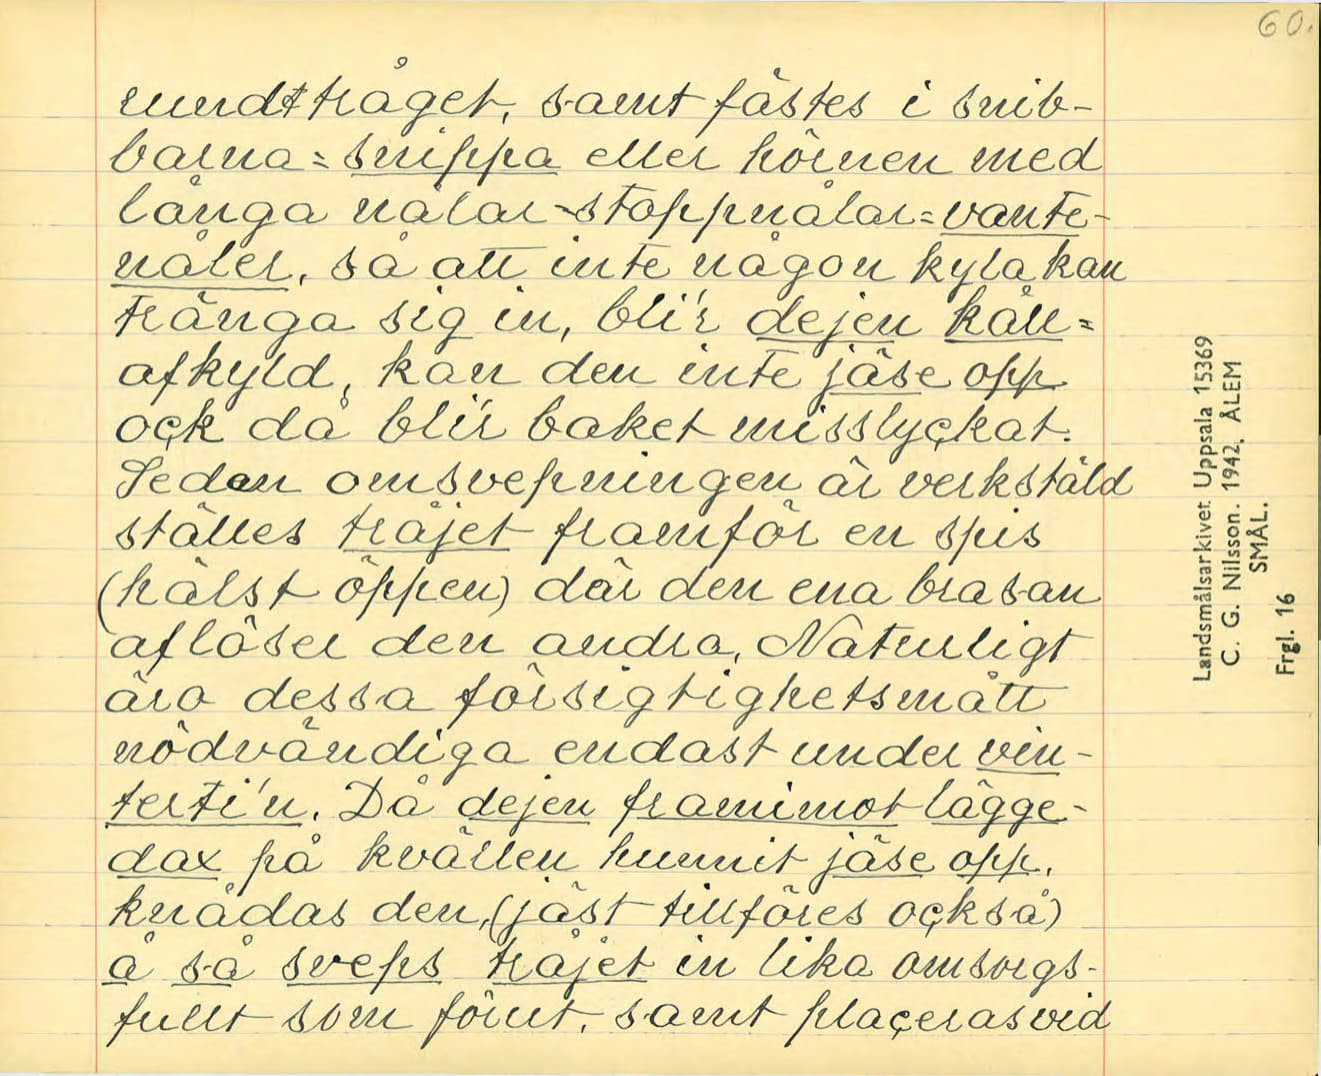 60.
rundt tråget, samt fästes i snib-
barna = snippa eller hörnen med
långa nålar - stoppnålar = vante-
nåler, så att inte någon kyla kan
tränga sig in, bli'r dejen kåll =
afkyld, kan den inte jäse opp
oçk då bli'r baket misslyçkat.
Sedan omsvepningen är verkstäld
ställes tråjet framför en spis
(hälst öppen) där den ena brasan
aflöser den andra. Naturligt
äro dessa försigtighetsmått
nödvändiga endast under vin-
terti'n. Då dejen framimot lägge-
dax på kvällen hunnit jäse opp,
knådas den, (jäst tillföres oçkså)
å så sveps tråjet in lika omsorgs-
fullt som förut, samt plaçeras vid
Landsmålsarkivet Uppsala 15369
C. G. Nilsson. 1942. ÅLEM
SMÅL.
Frgl. 16